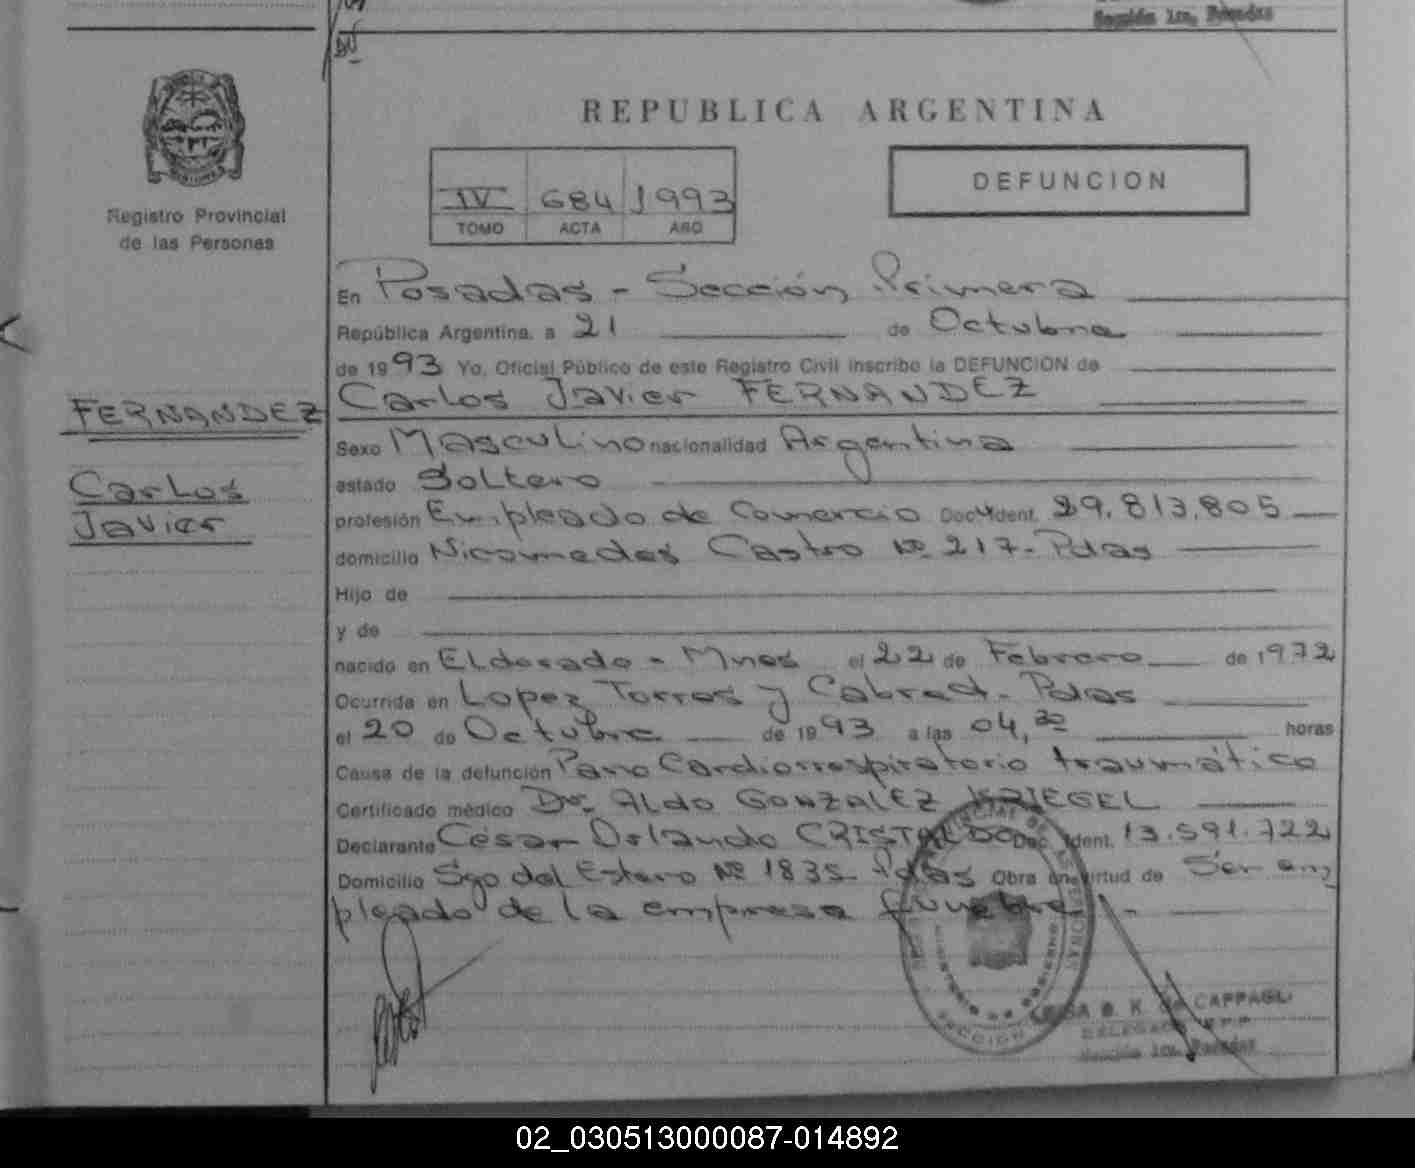 Sección 1ra. Posadas
REPUBLICA ARGENTINA
IV 684 1993
TOMO ACTA AÑO
DEFUNCION
Registro Provincial
de las Personas
FERNANDEZ
Carlos
Javier
En Posadas - Sección Primera
República Argentina, a 21 de Octubre
de 1993 Yo, Oficial Público de este Registro Civil inscribo la DEFUNCION de
Carlos Javier FERNANDEZ
Sexo Masculino nacionalidad Argentina
estado Soltero
profesión Empleado de Comercio Doc. Ident. 29.813.805
domicilio Nicomedes Castro Nº 217 - Pdas
Hijo de
y de
nacido en Eldorado - Mnes el 22 de Febrero de 1972
Ocurrida en Lopez Torres y Cabred - Pdas
el 20 de Octubre de 1993 a las 04,30 horas
Causa de la defunción Paro Cardiorrespiratorio traumático
Certificado médico Dr. Aldo GONZALEZ KRIEGEL
Declarante César Orlando CRISTALDO Doc. Ident. 13.591.722
Domicilio Sgo del Estero Nº 1835 - Pdas Obra en virtud de Ser em
pleado de la empresa fúnebre
B. K. de CAPPAGLI
Sección 1ra. Posadas
02_030513000087-014892